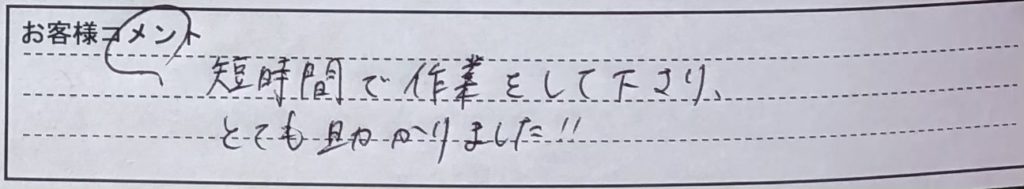 お客様コメント
短時間で作業をして下さり、
とても助かりました!!